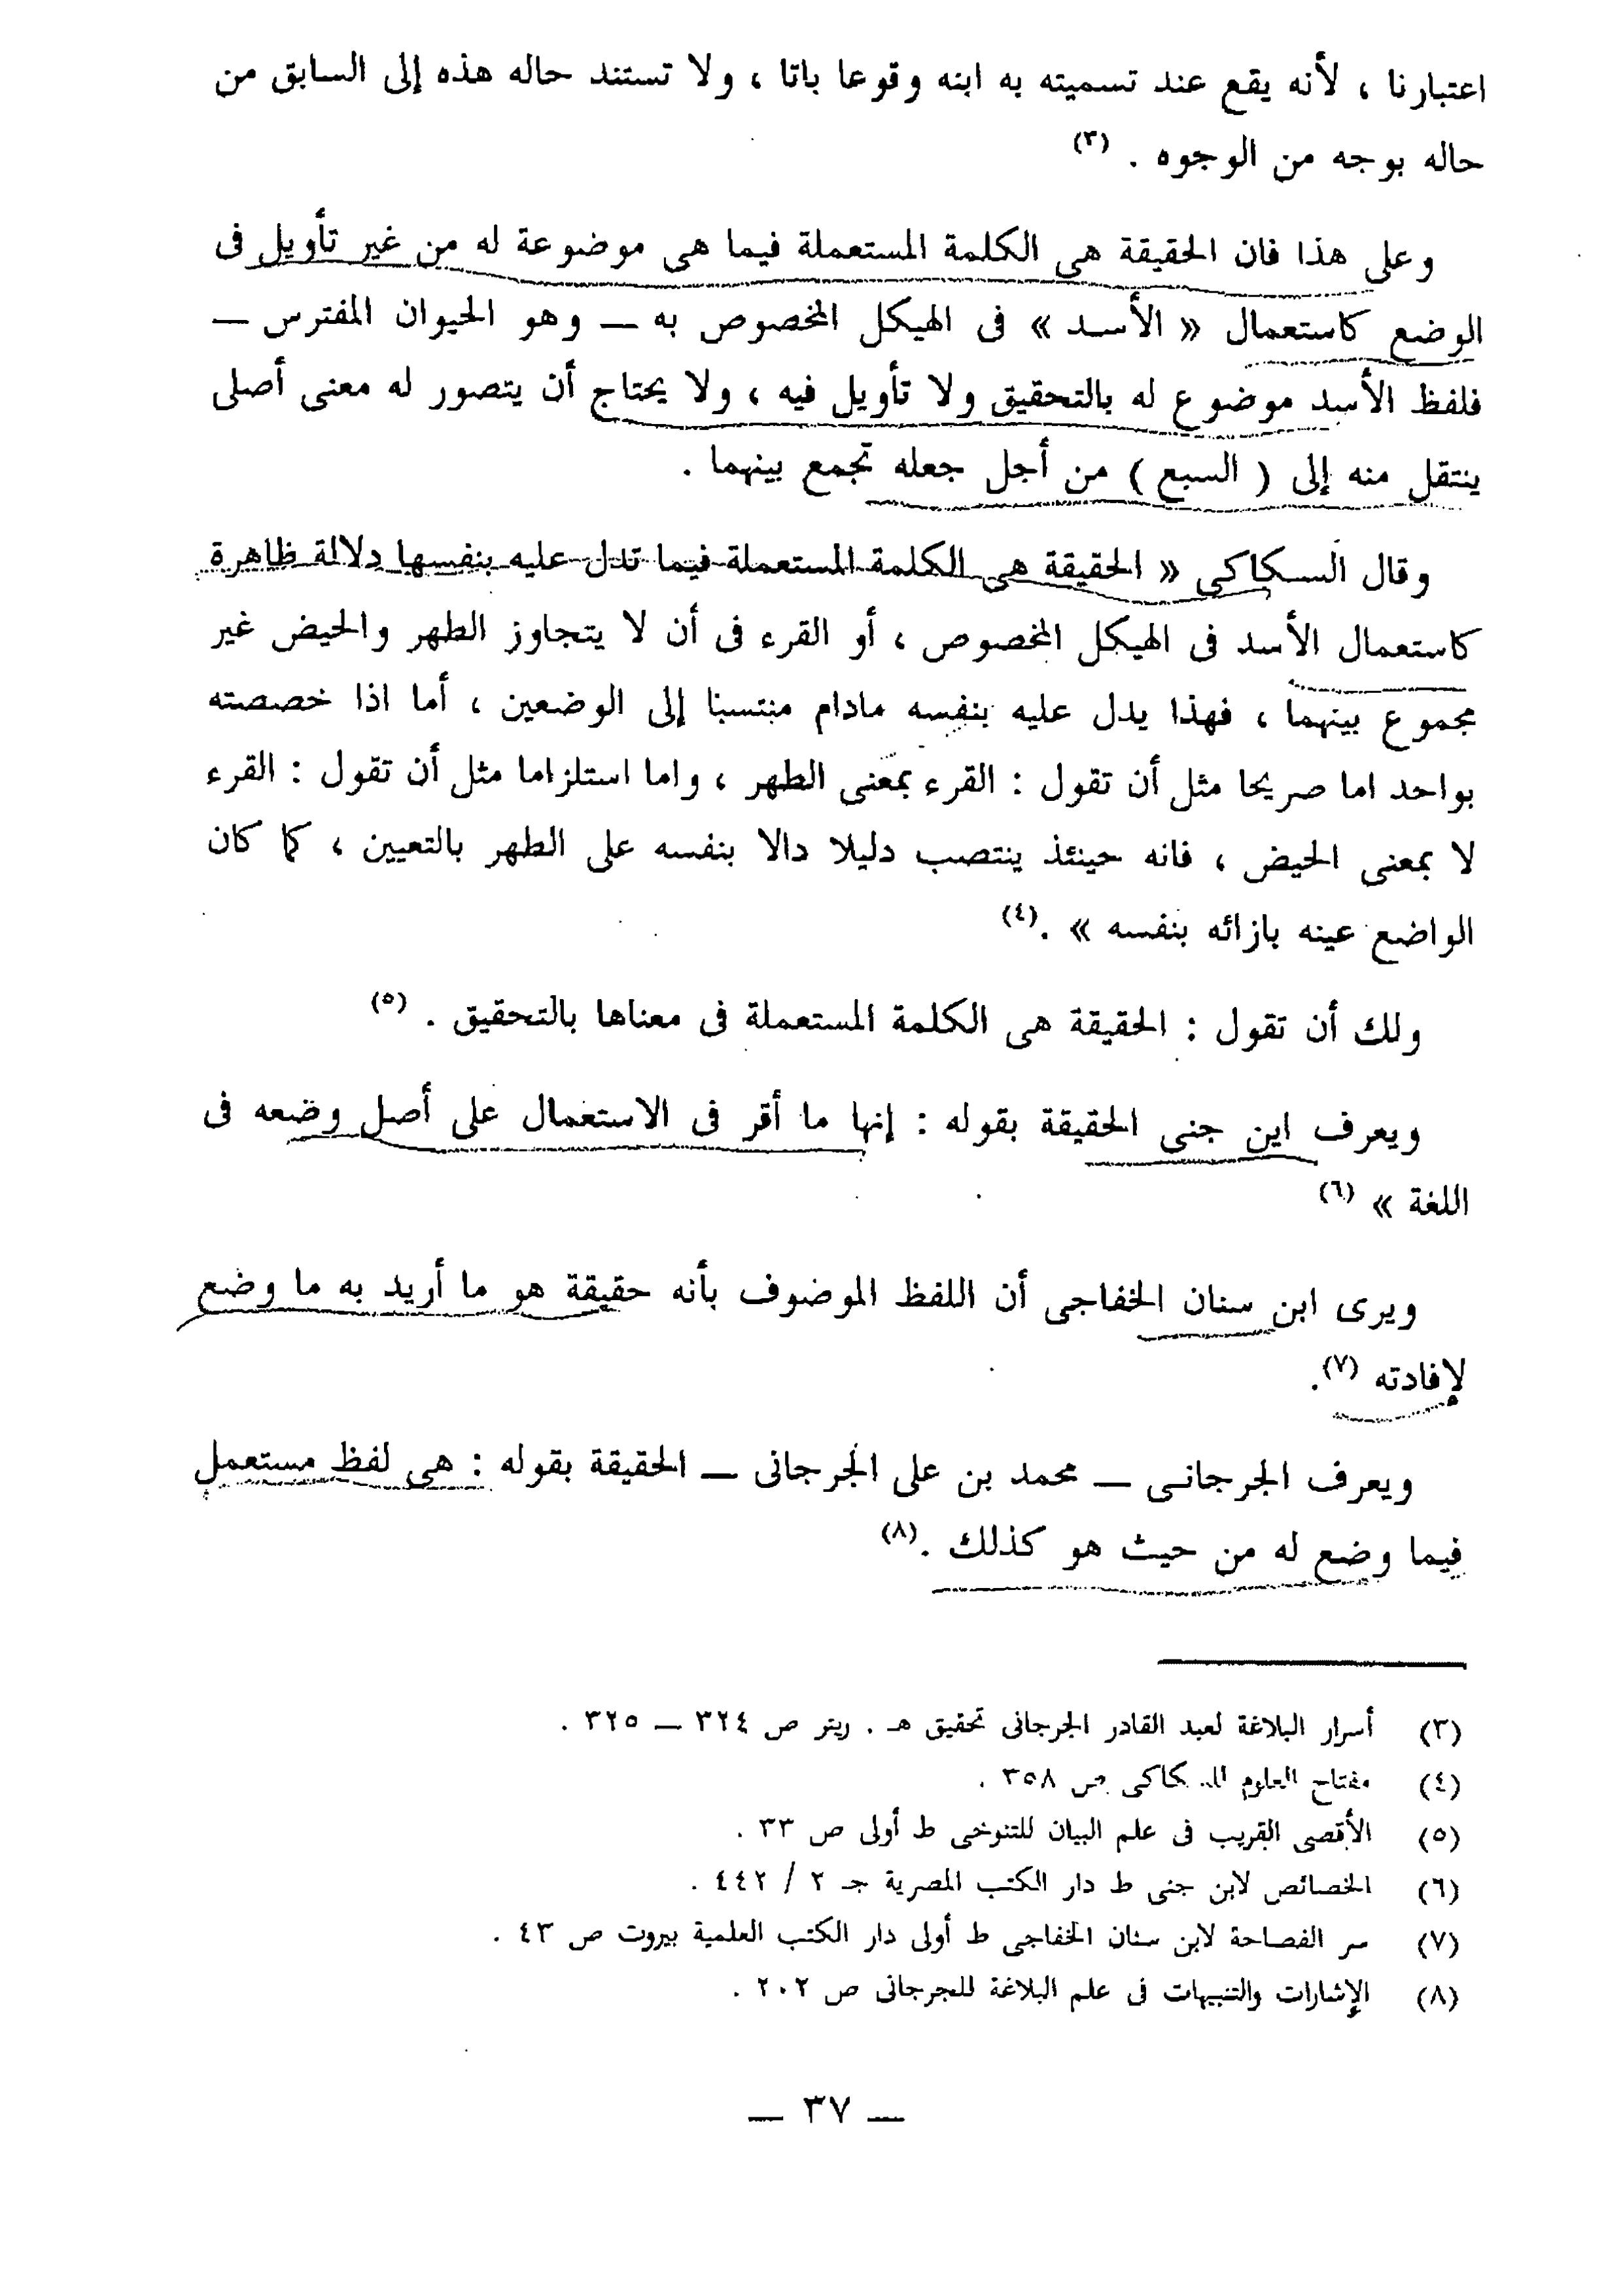 اعتبارنا ، لأنه يقع عند تسميته به ابنه وقوعا باتا ، ولا تستند حاله هذه إلى السابق من
حاله بوجه من الوجوه . (٣)
وعلى هذا فان الحقيقة هى الكلمة المستعملة فيما هى موضوعة له من غير تأويل فى
الوضع كاستعمال « الأسد » فى الهيكل المخصوص به — وهو الحيوان المفترس —
فلفظ الأسد موضوع له بالتحقيق ولا تأويل فيه ، ولا يحتاج أن يتصور له معنى أصلى
ينتقل منه إلى ( السبع ) من أجل جعله تجمع بينهما .
وقال السكاكى « الحقيقة هى الكلمة المستعملة فيما تدل عليه بنفسها دلالة ظاهرة
كاستعمال الأسد فى الهيكل المخصوص ، أو القرء فى أن لا يتجاوز الطهر والحيض غير
مجموع بينهما ، فهذا يدل عليه بنفسه مادام منتسبنا إلى الوضعين ، أما اذا خصصته
بواحد اما صريحا مثل أن تقول : القرء بمعنى الطهر ، واما استلزاما مثل أن تقول : القرء
لا بمعنى الحيض ، فانه حينئذ ينتصب دليلا دالا بنفسه على الطهر بالتعيين ، كما كان
الواضع عينه بازائه بنفسه » .(٤)
ولك أن تقول : الحقيقة هى الكلمة المستعملة فى معناها بالتحقيق . (٥)
ويعرف اين جنى الحقيقة بقوله : إنها ما أقر فى الاستعمال على أصل وضعه فى
اللغة » (٦)
ويرى ابن سنان الخفاجى أن اللفظ الموضوف بأنه حقيقة هو ما أريد به ما وضع
لإفادته (٧).
ويعرف الجرجانى — محمد بن على الجرجانى — الحقيقة بقوله : هى لفظ مستعمل
فيما وضع له من حيث هو كذلك .(٨)
(٣) أسرار البلاغة لعبد القادر الجرجانى تحقيق هـ . ريتر ص ٣٢٤ — ٣٢٥ .
(٤) مفتاح العلوم للسكاكى ص ٣٥٨ .
(٥) الأقصى القريب فى علم البيان للتنوخى ط أولى ص ٣٣ .
(٦) الخصائص لابن جنى ط دار الكتب المصرية جـ ٢ / ٤٤٢ .
(٧) سر الفصاحة لابن سنان الخفاجى ط أولى دار الكتب العلمية بيروت ص ٤٣ .
(٨) الإشارات والتنبيهات فى علم البلاغة للجرجانى ص ٢٠٢ .
— ٣٧ —